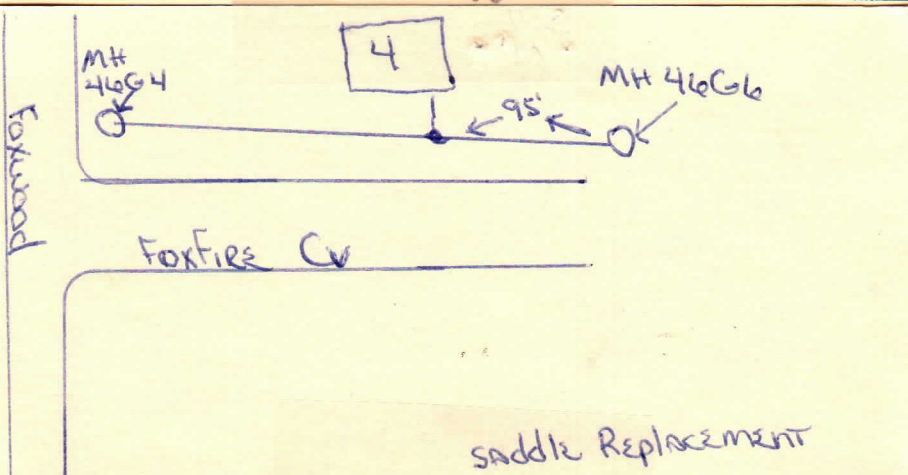 MH
46G4
4
MH 46G6
95'
Foxwood
FOXFIRE Cv
SADDLE REPLACEMENT